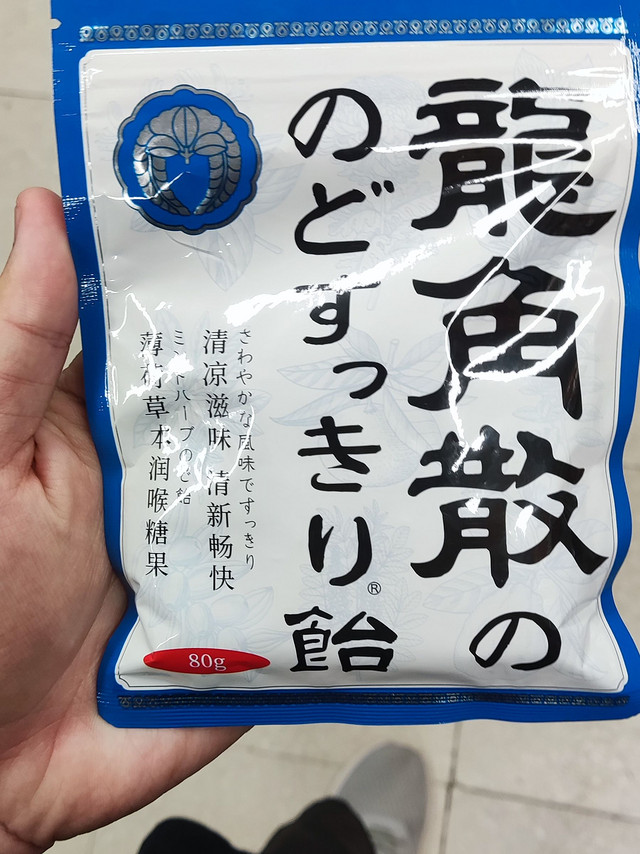 龍角散の
のどすっきり®飴
さわやかな風味ですっきり
清凉滋味 清新畅快
ミントハーブのど飴
薄荷草本润喉糖果
80g